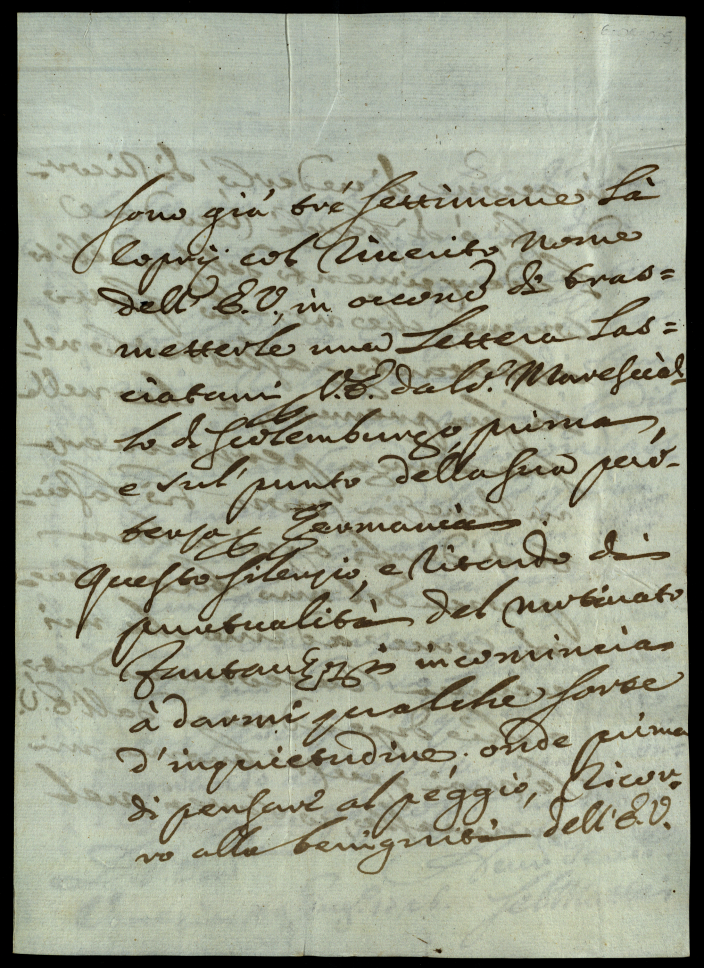 Sono già trè settimane Là
coprij col riverito nome
dell' E.V., in occone di tras=
metterle una Lettera Las=
ciatami p. V.E. dal S.r Marescial=
lo di Scolemburgo, prima,
e sul' punto della sua par=
tenza p Germania
Questo silenzio, e ritardo di
puntualità del notivato
in incomincia
à darmi qualche forse
d'inquietudine. onde prima
di pensare al pèggio, Ricor=
ro alla benignità dell' E.V.